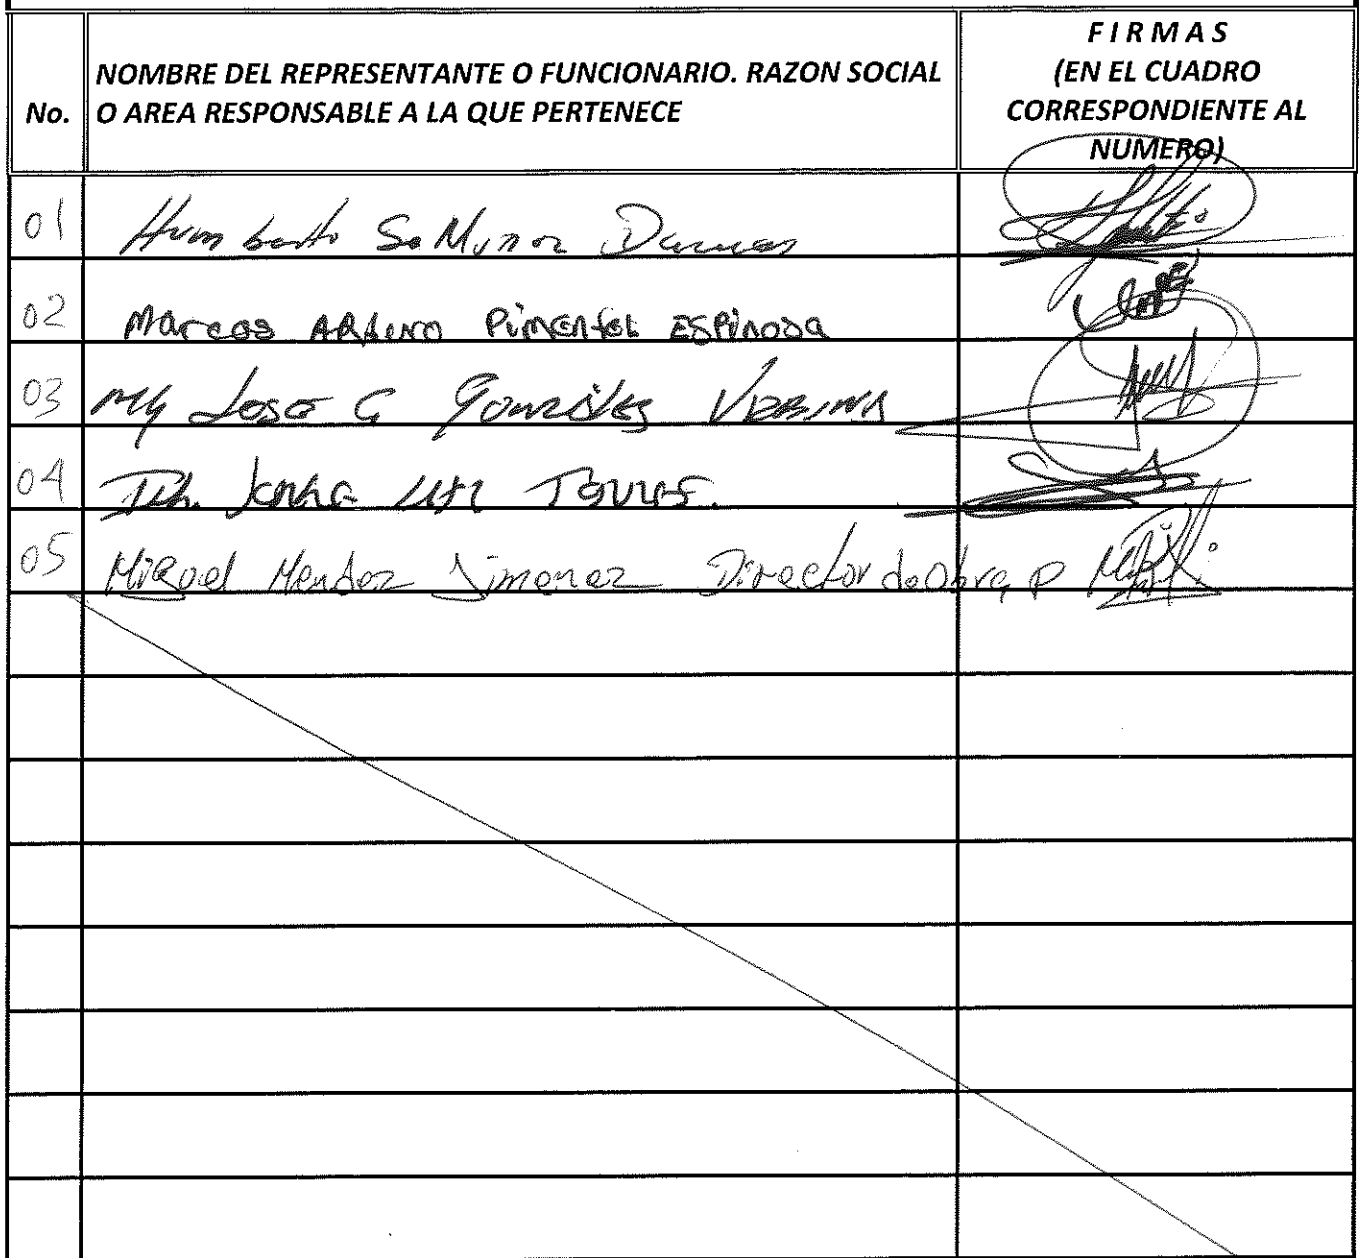 No.
NOMBRE DEL REPRESENTANTE O FUNCIONARIO. RAZON SOCIAL
O AREA RESPONSABLE A LA QUE PERTENECE
FIRMAS
(EN EL CUADRO
CORRESPONDIENTE AL
NUMERO)
01 Humberto
02 Marcos Arturo Pimentel Espinosa
03 Jose G González
04 Torres.
05 Miguel Mendez Jimenez Director de Obra P